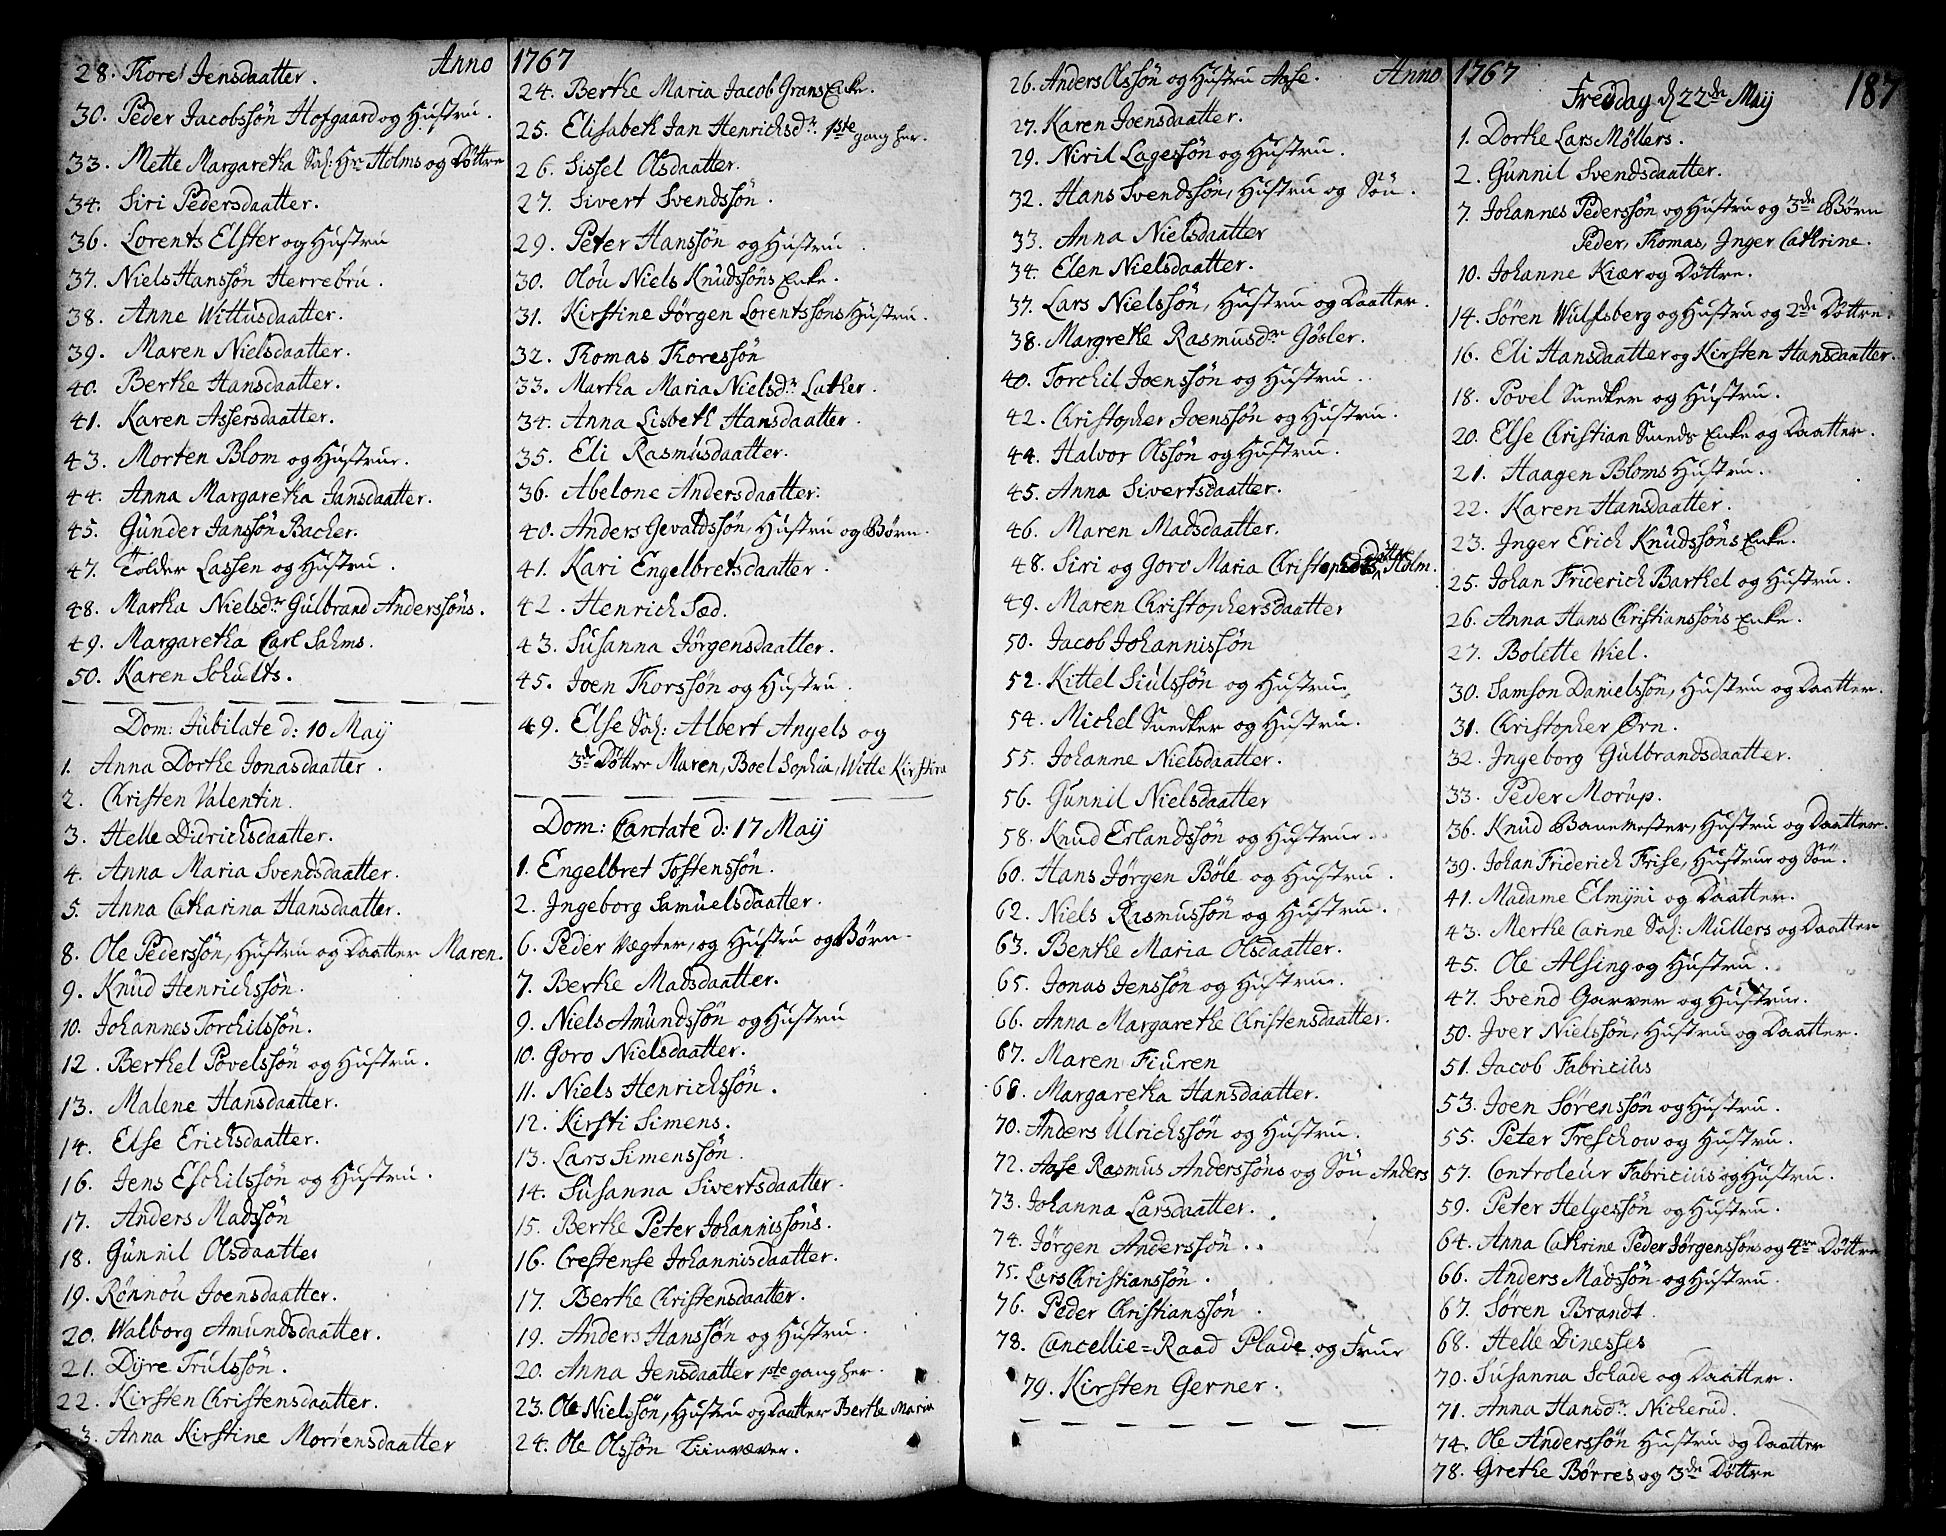 Anno 1767
28. Thore Jensdaatter.
30. Peder Jacobssön Hofgaard og Hustru.
33. Mette Margaretha Sal: Hr Holms og Döttre
34. Siri Pedersdaatter.
36. Lorents Elster og Hustru
37. Niels Hanssön Herrebru.
38. Anne Wittusdaatter.
39. Maren Nielsdaatter.
40. Berthe Hansdaatter.
41. Karen Assersdaatter.
43. Morten Blom og Hustrue.
44. Anna Margaretha Jansdaatter.
45. Gunder Janssön Bacher.
47. Tolder Lassen og Hustru.
48. Martha Nielsdr Gulbrand Anderssöns.
49. Margaretha Carl Sahms.
50. Karen Schults.
Dom: Jubilate d: 10 Maij
1. Anna Dorthe Jonasdaatter.
2. Christen Valentin.
3. Helle Didrichsdaatter.
4. Anna Maria Svendsdaatter.
5. Anna Catharina Hansdaatter.
8. Ole Pederssön, Hustru og Daatter Maren.
9. Knud Henrichssön.
10. Johannes Torchilssön.
12. Berthel Povelssön og Hustru.
13. Malene Hansdaatter.
14. Else Erichsdaatter.
16. Jens Eschilssön og Hustru.
17. Anders Madssön
18. Gunnil Olsdaatter
19. Rönnou Joensdaatter.
20. Walborg Amundsdaatter.
21. Dijre Trulssön.
22. Kirsten Christensdaatter.
23. Anna Kirstine Morrensdaatter
24. Berthe Maria Jacob Grans Enke.
25. Elisabeth Jan Henrichsdr. 1ste gang her.
26. Sissel Olsdaatter.
27. Sivert Svendssön.
29. Peter Hanssön og Hustru.
30. Olou Niels Knudssöns Enke.
31. Kirstine Jörgen Lorentssöns Hustru.
32. Thomas Thoressön
33. Martha Maria Nielsdr Luther.
34. Anna Lisbeth Hansdaatter.
35. Eli Rasmusdaatter.
36. Abelone Andersdaatter.
40. Anders Gevaldssön, Hustru og Börn.
41. Kari Engelbretsdaatter.
42. Henrich Sæd.
43. Susanna Jörgensdaatter.
45. Joen Thorssön og Hustru.
49. Else Sal: Albert Angels og
3de Döttre Maren, Boel Sophia, Witte Kirstina
Dom: Cantate d: 17 Maij
1. Engelbret Tostenssön.
2. Ingeborg Samuelsdaatter.
6. Peder Vægter, og Hustru og Börn.
7. Berthe Madsdaatter.
9. Niels Amundssön og Hustru
10. Goro Nielsdaatter.
11. Niels Henrichssön.
12. Kirsti Simens.
13. Lars Simenssön.
14. Susanna Sivertsdaatter.
15. Berthe Peter Johannissöns.
16. Crestense Johannisdaatter.
17. Berthe Christensdaatter.
19. Anders Hanssön og Hustru.
20. Anna Jensdaatter 1ste gang her.
23. Ole Nielssön, Hustru og Daatter Berthe Maria
24. Ole Olssön Liinvæver.
Anno 1767
187
26. Anders Olssön og Hustru Aase.
27. Karen Joensdaatter.
29. Niril Lagessön og Hustru.
32. Hans Svendssön, Hustru og Sön.
33. Anna Nielsdaatter
34. Elen Nielsdaatter.
37. Lars Nielssön, Hustru og Daatter.
38. Margrethe Rasmusdr Gösler.
40. Torchil Joenssön og Hustru.
42. Christopher Joenssön og Hustru.
44. Halvor Olssön og Hustru.
45. Anna Sivertsdaatter.
46. Maren Madsdaatter.
48. Siri og Goro Maria Döttre Holm.
49. Maren Christophersdaatter
50. Jacob Johannissön
52. Kittel Siulssön og Hustrue
54. Michel Snedker og Hustru.
55. Johanne Nielsdaatter.
56. Gunnil Nielsdaatter
58. Knud Erlandssön og Hustrue.
60. Hans Jörgen Böle og Hustru.
62. Niels Rasmussön og Hustru.
63. Benthe Maria Olsdaatter.
65. Jonas Jenssön og Hustrue.
66. Anna Margarethe Christensdaatter.
67. Maren Fiuren
68. Margaretha Hansdaatter.
70. Anders Ulrichssön og Hustru.
72. Aase Rasmus Anderssöns og Sön Anders
73. Johanna Larsdaatter.
74. Jörgen Anderssön.
75. Lars Christianssön.
76. Peder Christianssön.
78. Cancellie=Raad Plade og Frue
79. Kirsten Gerner.
Fredag d 22de Maij
1. Dorthe Lars Möllers.
2. Gunnil Svendsdaatter.
7. Johannes Pederssön og Hustru og 3de Börn
Peder, Thomas, Inger Cathrine.
10. Johanne Kiær og Döttre.
14. Sören Wulfsberg og Hustru og 2de Döttre.
16. Eli Hansdaatter og Kirsten Hansdaatter.
18. Povel Snedker og Hustru.
20. Else Christian Smeds Enke og Daatter.
21. Haagen Bloms Hustru.
22. Karen Hansdaatter.
23. Inger Erich Knudssöns Enke.
25. Johan Friderich Barthel og Hustru.
26. Anna Hans Christianssöns Enke.
27. Bolette Wiel.
30. Samson Danielssön, Hustru og Daatter.
31. Christopher Ørn.
32. Ingeborg Gulbrandsdaatter.
33. Peder Morup.
36. Knud Banemester, Hustru og Daatter.
39. Johan Friderich Frise, Hustrue og Sön.
41. Madame Elmijni og Daatter.
43. Merthe Carine Sal: Mullers og Daatter
45. Ole Alsing og Hustru.
47. Svend Garver og Hustrue.
50. Iver Nielssön, Hustru og Daatter.
51. Jacob Fabricius
53. Joen Sörenssön og Hustru.
55. Peter Treschow og Hustru.
57. Controleur Fabricius og Hustru.
59. Peter Helgessön og Hustru.
64. Anna Cathrine Peder Jörgenssöns og 4re Döttre
66. Anders Madssön og Hustru.
67. Sören Brandt
68. Helle Dinesses
70. Susanna Schade og Daatter.
71. Anna Hansdr. Nickerud.
74. Ole Anderssön Hustru og Daatter
78. Grethe Börres og 3de Döttre